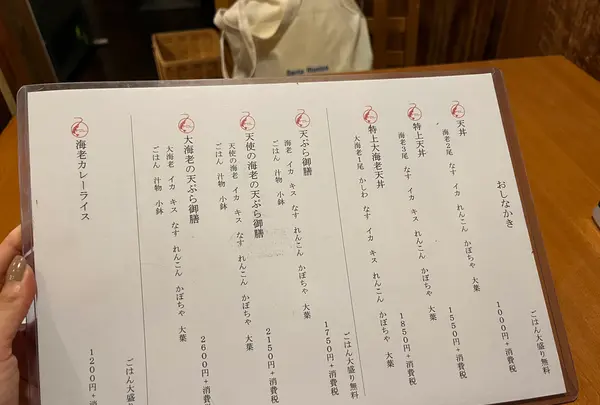 おしながき
ごはん大盛り無料
天丼
海老2尾 なす イカ れんこん かぼちゃ 大葉
1000円+消費税
特上天丼
海老3尾 なす イカ キス れんこん かぼちゃ 大葉
1550円+消費税
特上大海老天丼
大海老1尾 かしわ なす イカ キス れんこん かぼちゃ 大葉
1850円+消費税
ごはん大盛り無料
天ぷら御膳
海老 イカ キス なす れんこん かぼちゃ 大葉
ごはん 汁物 小鉢
1750円+消費税
天使の海老の天ぷら御膳
天使の海老 イカ キス なす れんこん かぼちゃ 大葉
ごはん 汁物 小鉢
2150円+消費税
大海老の天ぷら御膳
大海老 イカ キス なす れんこん かぼちゃ 大葉
ごはん 汁物 小鉢
2600円+消費税
ごはん大盛
海老カレーライス
1200円+消費税